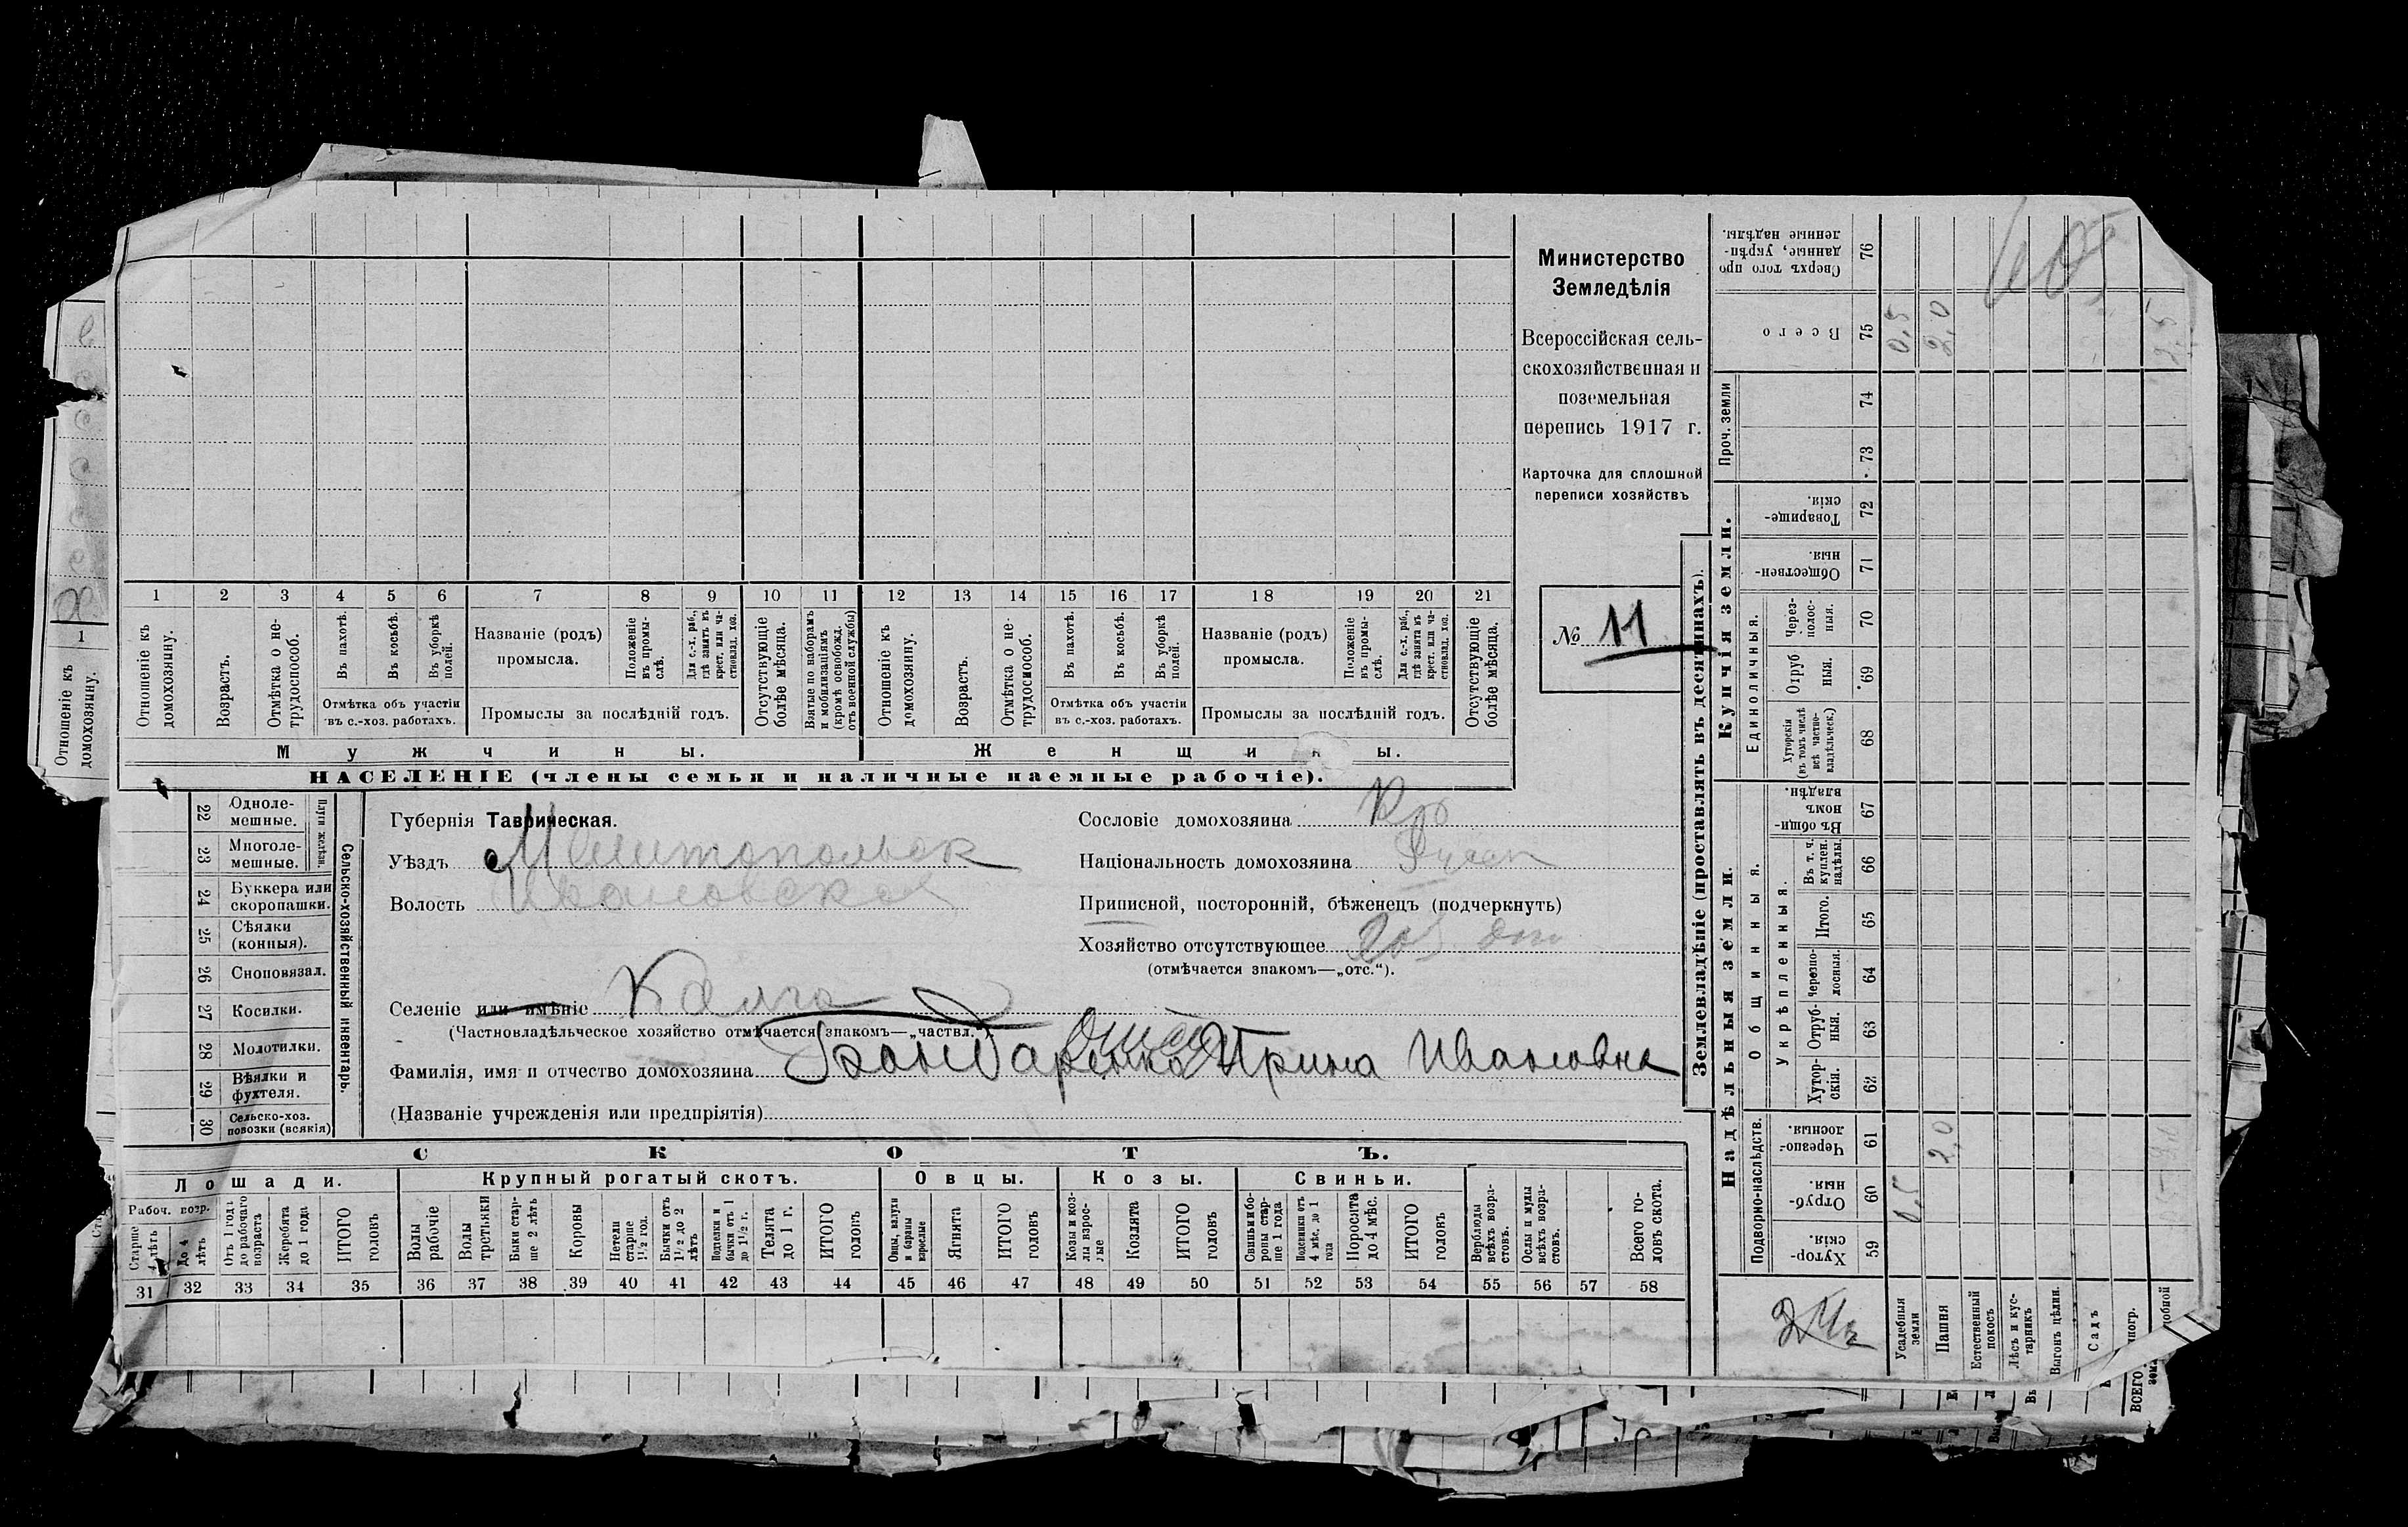 Министерство
Земледѣлія
Всероссійская сель-
скохозяйственная и
поземельная
перепись 1917 г.
Карточка для сплошной
переписи хозяйствъ
№ 11
1 2 3 4 5 6 7 8 9 10 11 12 13 14 15 16 17 18 19 20 21
Отношеніе къ домохозяину.
Возрастъ.
Отмѣтка о не-трудоспособ.
Въ пахотѣ.
Въ косьбѣ.
Въ уборкѣ полей.
Отмѣтка объ участіи
въ с.-хоз. работахъ.
Названіе (родъ)
промысла.
Положеніе въ промы-слѣ.
Для с.-х. раб., гдѣ занятъ въ крест. или ча-стновлад. хоз.
Промыслы за послѣдній годъ.
Отсутствующіе болѣе мѣсяца.
Взятые по наборамъ и мобилизаціямъ (кромѣ освобожд. отъ военной службы)
Отношеніе къ домохозяину.
Возрастъ.
Отмѣтка о не-трудоспособ.
Въ пахотѣ.
Въ косьбѣ.
Въ уборкѣ полей.
Отмѣтка объ участіи
въ с.-хоз. работахъ.
Названіе (родъ)
промысла.
Положеніе въ промы-слѣ.
Для с.-х. раб., гдѣ занята въ крест. или ча-стновлад. хоз.
Промыслы за послѣдній годъ.
Отсутствующіе болѣе мѣсяца.
Мужчины. Женщины.
НАСЕЛЕНІЕ (члены семьи и наличные наемные рабочіе).
1
Отношеніе къ домохозяину.
22 Одноле-мешные.
23 Многоле-мешные.
Плуги желѣзн.
24 Буккера или скоропашки.
25 Сѣялки (конныя).
26 Сноповязал.
27 Косилки.
28 Молотилки.
29 Вѣялки и фухтеля.
30 Сельско-хоз. повозки (всякія)
Сельско-хозяйственный инвентарь.
Губернія Таврическая.
Уѣздъ Мелитопольск
Волость Ивановская
Селеніе или имѣніе
(Частновладѣльческое хозяйство отмѣчается знакомъ—„частвл.“)
Фамилія, имя и отчество домохозяина Бондаренко Ирина Ивановна
(Названіе учрежденія или предпріятія)
Сословіе домохозяина Кр
Національность домохозяина Русск
Приписной, посторонній, бѣженецъ (подчеркнуть)
Хозяйство отсутствующее
(отмѣчается знакомъ—„отс.“).
СКОТЪ.
Лошади. Крупный рогатый скотъ. Овцы. Козы. Свиньи.
Рабоч. возр.
Старше 4 лѣтъ
До 4 лѣтъ
Отъ 1 года до рабочаго возраста
Жеребята до 1 года
ИТОГО головъ
Волы рабочіе
Волы третьяки
Быки стар-ше 2 лѣтъ
Коровы
Нетели старше 1½ год.
Бычки отъ 1½ до 2 лѣтъ
Подтелки и бычки отъ 1 до 1½ г.
Телята до 1 г.
ИТОГО головъ
Овцы, валухи и бараны взрослые
Ягнята
ИТОГО головъ
Козы и коз-лы взрос-лые
Козлята
ИТОГО головъ
Свиньи и бо-ровы стар-ше 1 года
Подсвинки отъ 4 мѣс. до 1 года
Поросята до 4 мѣс.
ИТОГО головъ
Верблюды всѣхъ возра-стовъ.
Ослы и мулы всѣхъ возра-стовъ.
Всего го-ловъ скота.
31 32 33 34 35 36 37 38 39 40 41 42 43 44 45 46 47 48 49 50 51 52 53 54 55 56 57 58
Землевладѣніе (проставлять въ десятинахъ).
Надѣльныя земли.
Купчія земли.
Проч. земли
Подворно-наслѣдств.
Общинныя.
Укрѣпленныя.
Единоличныя.
Хутор-скія. 59
Отруб-ныя. 60
Черезпо-лосныя. 61
Хутор-скія. 62
Отруб-ныя. 63
Черезпо-лосныя. 64
Итого. 65
Въ т. ч. куплен. надѣлы. 66
Въ общин-номъ владѣн. 67
Хуторскія (въ томъ числѣ всѣ частно-владѣльческ.) 68
Отруб ныя. 69
Через-полос-ныя. 70
Обществен-ныя. 71
Товарище-скія. 72
73
74
Всего 75
Сверхъ того про данные, укрѣп-ленные надѣлы. 76
Усадебныя земли 0,5 0,5
Пашня 2,0 2,0
Естественный покосъ
Лѣсъ и кус-тарникъ
Выгонъ цѣлин.
Садъ
2,5
ВСЕГО